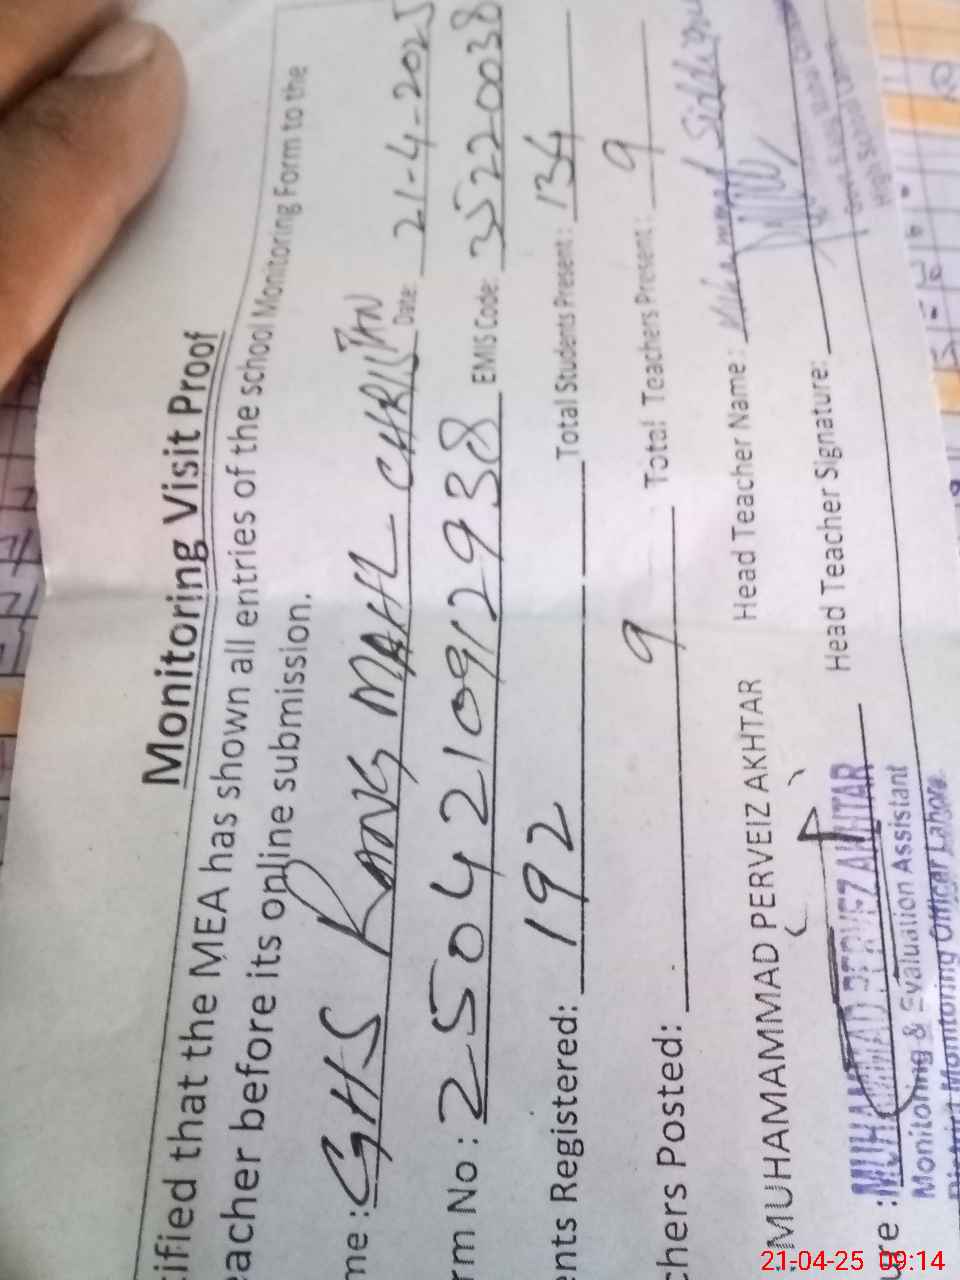 Monitoring Visit Proof
tified that the MEA has shown all entries of the school Monitoring Form to the
eacher before its online submission.
me : GHS RANG MAHL - CHRISTIAN Date: 21-4-2025
rm No : 25042109129 38 EMIS Code: 35220038
ents Registered: 192 Total Students Present: 134
chers Posted: 9 Total Teachers Present: 9
: MUHAMAMMAD PERVEIZ AKHTAR Head Teacher Name: Muhammad Siddique
ure : MUHAMMAD PERVEZ AKHTAR Head Teacher Signature:
Monitoring & Evaluation Assistant
District Monitoring Officer Lahore.
High School
21-04-25 09:14